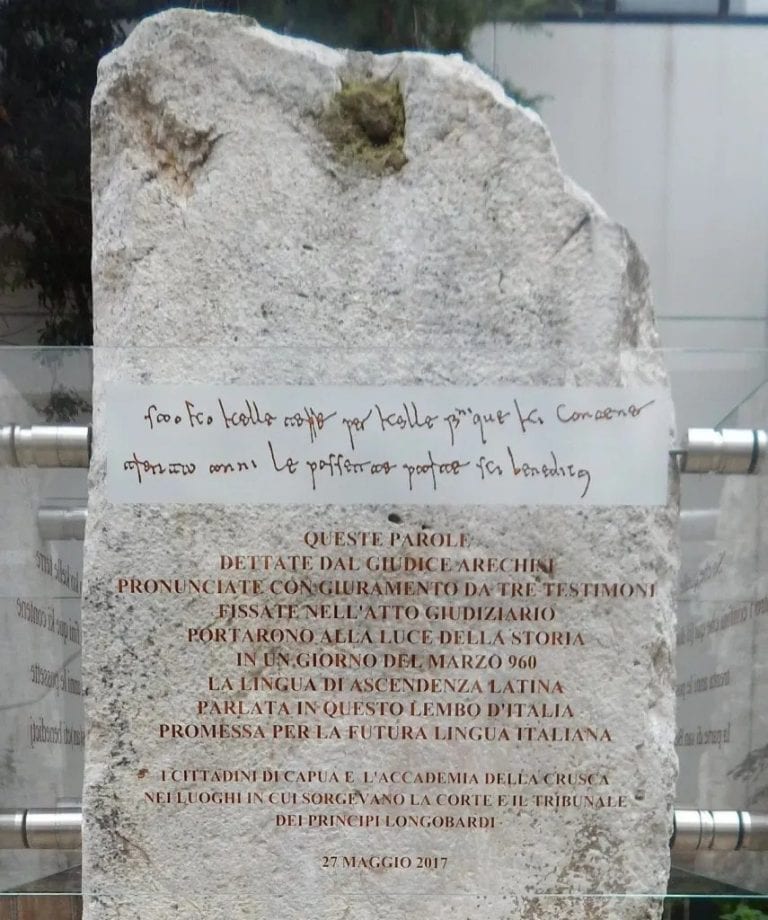 sao ko kelle terre per kelle fini que ki contene
trenta anni le possette parte sci benedicti
QUESTE PAROLE
DETTATE DAL GIUDICE ARECHISI
PRONUNCIATE CON GIURAMENTO DA TRE TESTIMONI
FISSATE NELL'ATTO GIUDIZIARIO
PORTARONO ALLA LUCE DELLA STORIA
IN UN GIORNO DEL MARZO 960
LA LINGUA DI ASCENDENZA LATINA
PARLATA IN QUESTO LEMBO D'ITALIA
PROMESSA PER LA FUTURA LINGUA ITALIANA
I CITTADINI DI CAPUA E L'ACCADEMIA DELLA CRUSCA
NEI LUOGHI IN CUI SORGEVANO LA CORTE E IL TRIBUNALE
DEI PRINCIPI LONGOBARDI
27 MAGGIO 2017